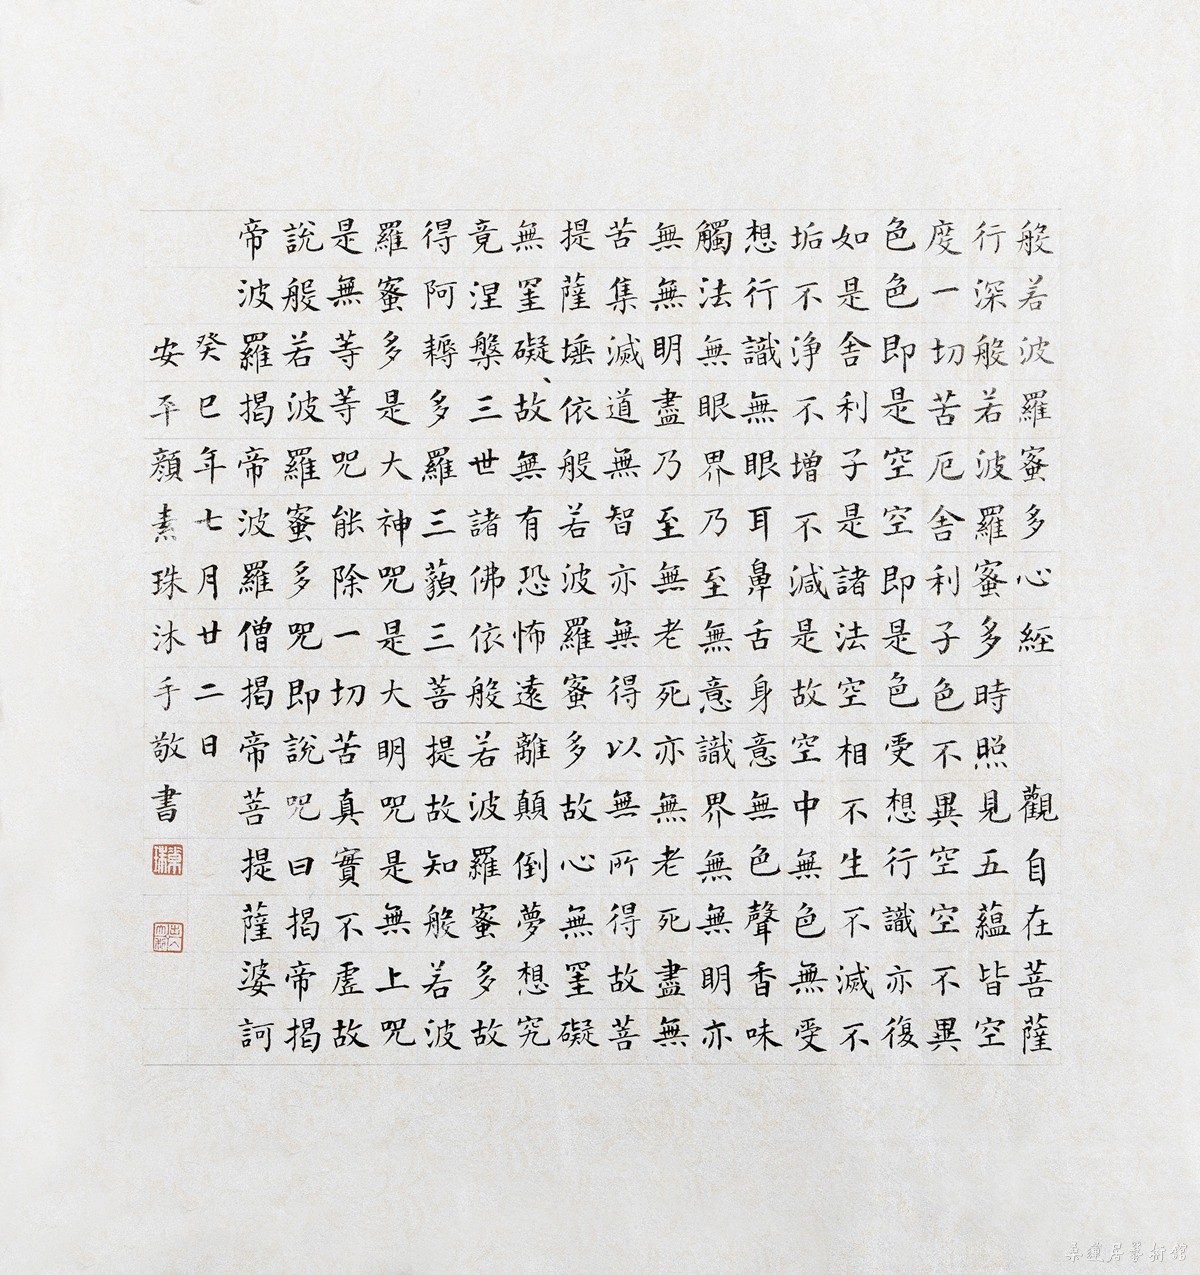 般若波羅蜜多心經 觀自在菩薩
行深般若波羅蜜多時照見五蘊皆空
度一切苦厄舍利子色不異空空不異
色色即是空空即是色受想行識亦復
如是舍利子是諸法空相不生不滅不
垢不淨不增不減是故空中無色無受
想行識無眼耳鼻舌身意無色聲香味
觸法無眼界乃至無意識界無無明亦
無無明盡乃至無老死亦無老死盡無
苦集滅道無智亦無得以無所得故菩
提薩埵依般若波羅蜜多故心無罣礙
無罣礙、故無有恐怖遠離顛倒夢想究
竟涅槃三世諸佛依般若波羅蜜多故
得阿耨多羅三藐三菩提故知般若波
羅蜜多是大神咒是大明咒是無上咒
是無等等咒能除一切苦真實不虛故
說般若波羅蜜多咒即說咒曰揭帝揭
帝波羅揭帝波羅僧揭帝菩提薩婆訶
癸巳年七月廿二日
安平顏素珠沐手敬書
桑蓮居藝術館